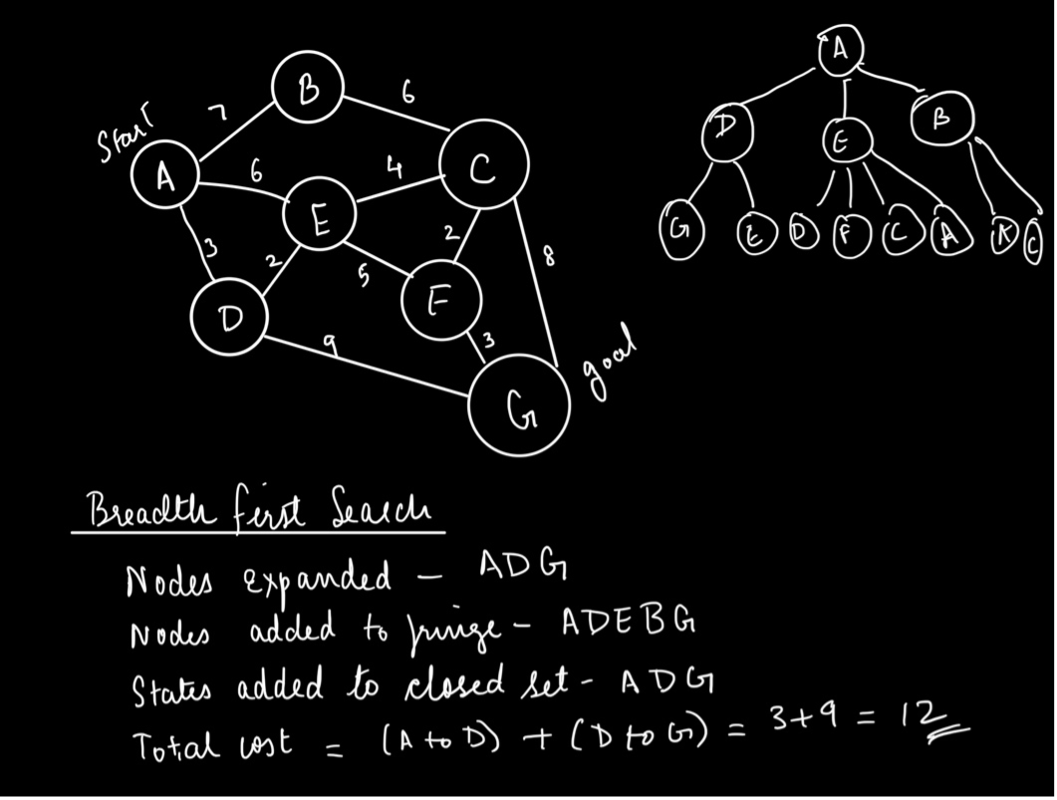 Start
A
7
B
6
C
6
E
4
3
2
D
5
2
F
8
9
3
G
goal
A
D
E
B
G
E
D
F
C
A
A
C
Breadth first Search
Nodes expanded - ADG
Nodes added to fringe - ADEBG
States added to closed set - ADG
Total cost = (A to D) + (D to G) = 3+9 = 12